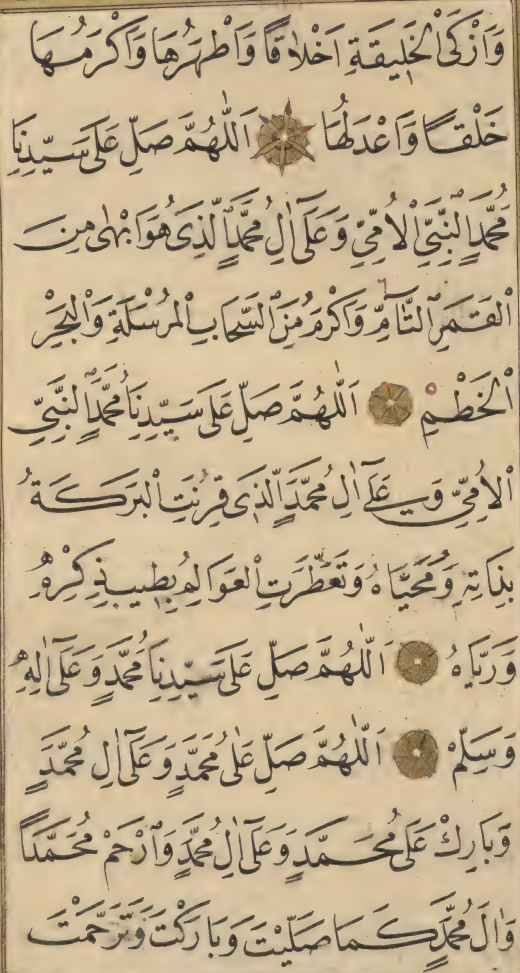 وَاَزْكَى الْخَلِيقَةِ اَخْلَاقًا وَاَطْهَرُهَا وَاَكْرَمُهَا
خَلْقًا وَاَعْدَلُهَا اَللّٰهُمَّ صَلِّ عَلٰى سَيِّدِنَا
مُحَمَّدٍ النَّبِىِّ الْاُمِّىِّ وَعَلٰٓى اٰلِ مُحَمَّدٍ الَّذِى هُوَ اَبْهٰى مِنَ
الْقَمَرِ التَّآمِّ وَاَكْرَمُ مِنَ السَّحَابِ الْمُرْسَلَةِ وَالْبَحْرِ
الْخَطْمِ اَللّٰهُمَّ صَلِّ عَلٰى سَيِّدِنَا مُحَمَّدٍ النَّبِىِّ
الْاُمِّىِّ وَعَلٰٓى اٰلِ مُحَمَّدٍ الَّذِى قُرِنَتِ الْبَرَكَةُ
بِذَاتِهِ وَمُحَيَّاهُ وَتَعَطَّرَتِ الْعَوَالِمُ بِطِيبِ ذِكْرِهِ
وَرَيَّاهُ اَللّٰهُمَّ صَلِّ عَلٰى سَيِّدِنَا مُحَمَّدٍ وَعَلٰٓى اٰلِهِ
وَسَلِّمْ اَللّٰهُمَّ صَلِّ عَلٰى مُحَمَّدٍ وَعَلٰٓى اٰلِ مُحَمَّدٍ
وَبَارِكْ عَلٰى مُحَمَّدٍ وَعَلٰٓى اٰلِ مُحَمَّدٍ وَارْحَمْ مُحَمَّدًا
وَاٰلَ مُحَمَّدٍ كَمَا صَلَّيْتَ وَبَارَكْتَ وَتَرَحَّمْتَ